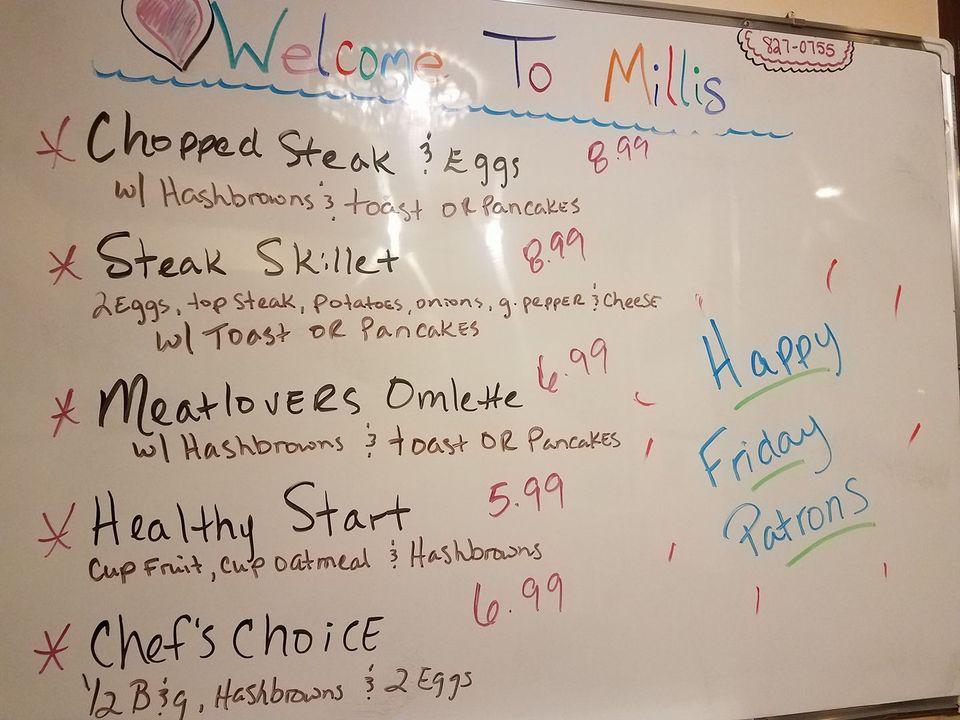 Welcome To Millis
827-0755
* Chopped Steak & Eggs 8.99
w/ Hashbrowns & toast OR Pancakes
* Steak Skillet 8.99
2 Eggs, top steak, potatoes, onions, g. pepper & cheese
w/ Toast OR Pancakes
* Meatlovers Omlette 6.99
w/ Hashbrowns & toast OR Pancakes
* Healthy Start 5.99
cup fruit, cup oatmeal & Hashbrowns
* Chef's Choice 6.99
1/2 B & g, Hashbrowns & 2 Eggs
Happy
Friday
Patrons